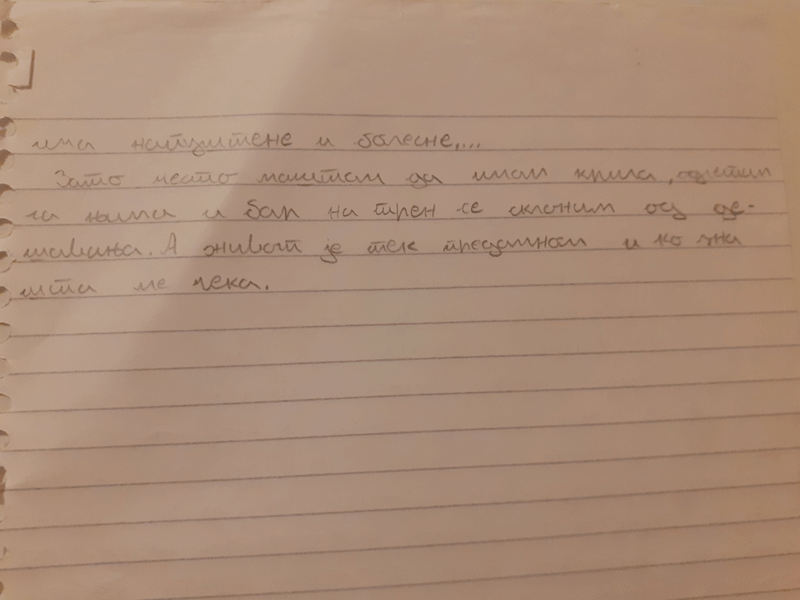 има напуштене и болесне,...
Зато често маштам да имам крила, одлетим
са њима и бар на трен се склоним од де-
шавања. А живот је тек предамном и ко зна
шта ме чека.